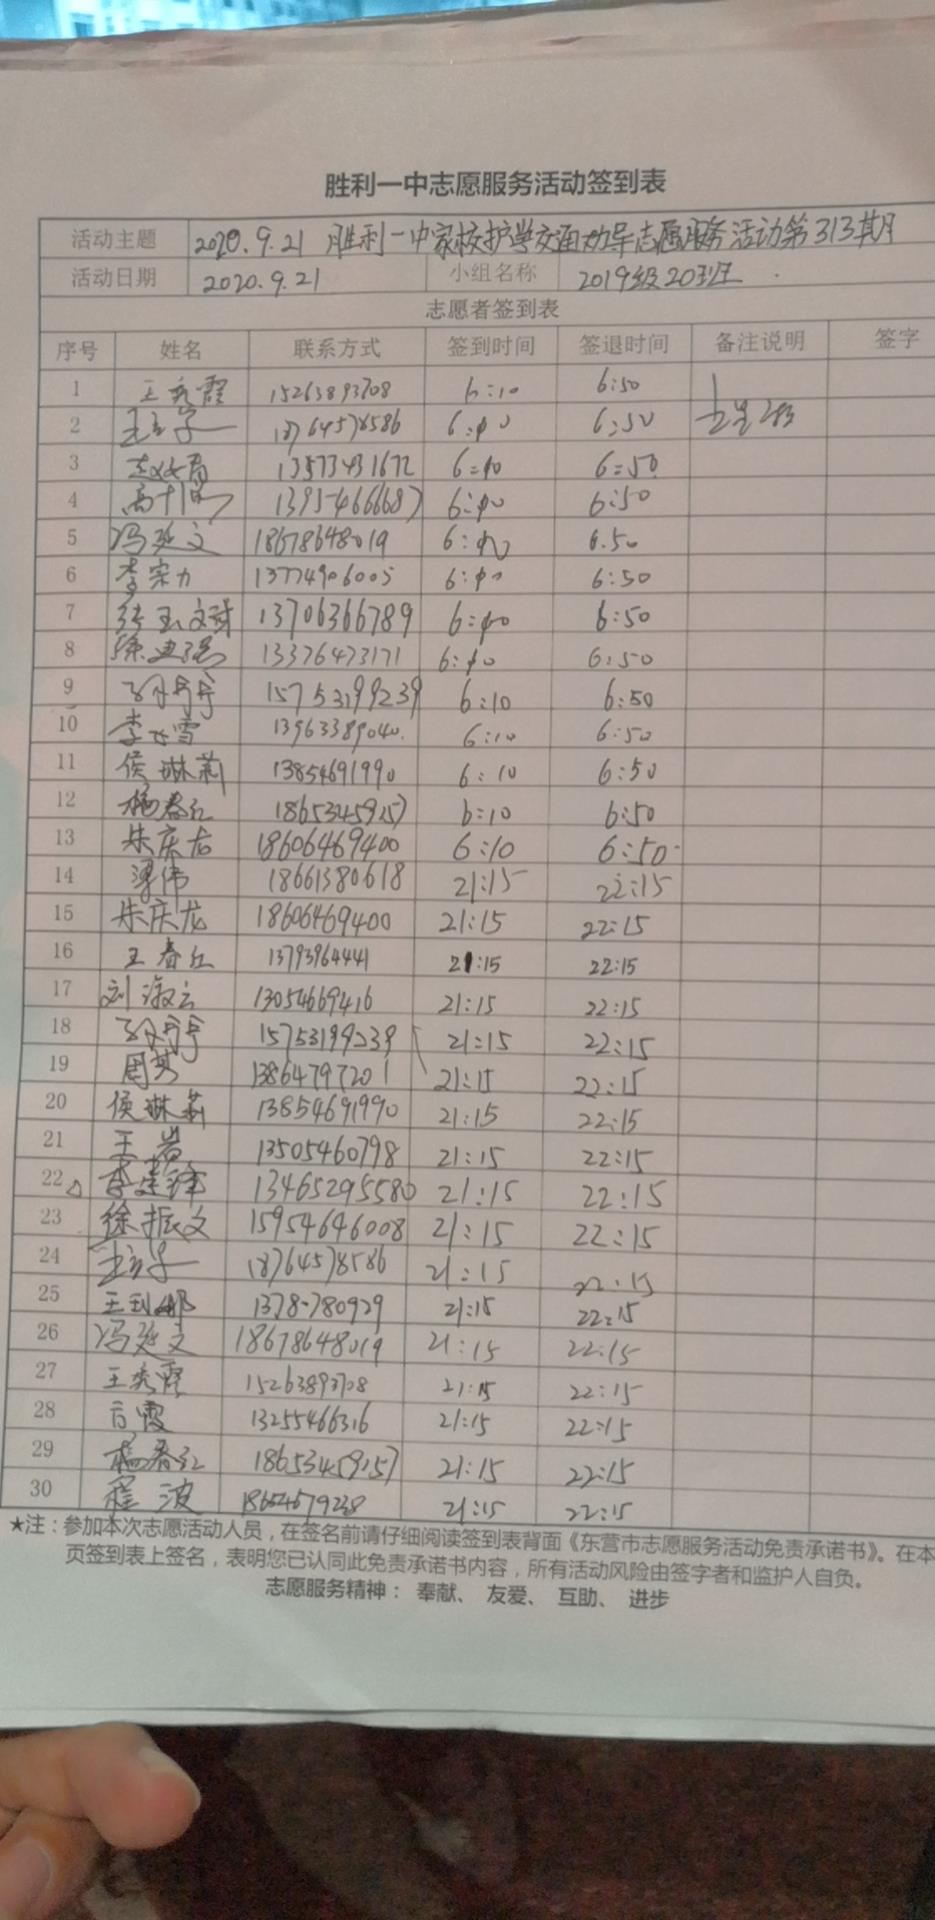 胜利一中志愿服务活动签到表
活动主题 2020.9.21 胜利一中家校护学交通劝导志愿服务活动第313期
活动日期 2020.9.21 小组名称 2019级20班
志愿者签到表
序号 姓名 联系方式 签到时间 签退时间 备注说明 签字
1 王秀霞 15263893708 6:10 6:50
2 18764578586 6:10 6:50
3 13573431672 6:10 6:50
4 13954666687 6:10 6:50
5 冯延文 18678648019 6:10 6:50
6 李宗力 13774906005 6:10 6:50
7 13706366789 6:10 6:50
8 13376473171 6:10 6:50
9 15753199239 6:10 6:50
10 李飞雪 13963389040 6:10 6:50
11 侯琳莉 13854691990 6:10 6:50
12 杨春红 18653459157 6:10 6:50
13 朱庆龙 18606469400 6:10 6:50
14 梁伟 18661380618 21:15 22:15
15 朱庆龙 18606469400 21:15 22:15
16 王春红 13793964441 21:15 22:15
17 刘淑云 13054669416 21:15 22:15
18 15753199239 21:15 22:15
19 周英 13864797201 21:15 22:15
20 侯琳莉 13854691990 21:15 22:15
21 王岩 13505460798 21:15 22:15
22 李建锋 13465295580 21:15 22:15
23 徐振文 15954646008 21:15 22:15
24 18764578586 21:15 22:15
25 21:15 22:15
26 冯延文 18678648019 21:15 22:15
27 王秀霞 15263893708 21:15 22:15
28 13255466316 21:15 22:15
29 杨春红 18653459157 21:15 22:15
30 程波 18654679238 21:15 22:15
★注：参加本次志愿活动人员，在签名前请仔细阅读签到表背面《东营市志愿服务活动免责承诺书》。在本
页签到表上签名，表明您已认同此免责承诺书内容，所有活动风险由签字者和监护人自负。
志愿服务精神： 奉献、 友爱、 互助、 进步